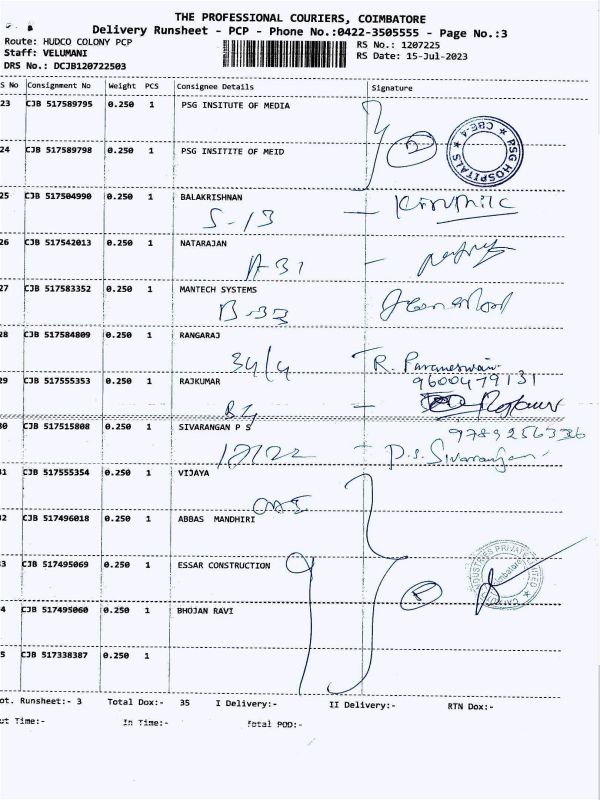 THE PROFESSIONAL COURIERS, COIMBATORE
Delivery Runsheet - PCP - Phone No.:0422-3505555 - Page No.:3
Route: HUDCO COLONY PCP
RS No.: 1207225
Staff: VELUMANI
RS Date: 15-Jul-2023
DRS No.: DCJB120722503
S No Consignment No Weight PCS Consignee Details Signature
23 CJB 517589795 0.250 1 PSG INSITUTE OF MEDIA
24 CJB 517589798 0.250 1 PSG INSITITE OF MEID
PSG HOSPITALS ★ CBE-4 ★
25 CJB 517504990 0.250 1 BALAKRISHNAN
S-13
26 CJB 517542013 0.250 1 NATARAJAN
A 31
27 CJB 517583352 0.250 1 MANTECH SYSTEMS
B-33
28 CJB 517584809 0.250 1 RANGARAJ
34/4 R. Parameswari
29 CJB 517555353 0.250 1 RAJKUMAR
9600479131
30 CJB 517515808 0.250 1 SIVARANGAN P S
P.S. Sivarangan
31 CJB 517555354 0.250 1 VIJAYA
32 CJB 517496018 0.250 1 ABBAS MANDHIRI
33 CJB 517495069 0.250 1 ESSAR CONSTRUCTION
34 CJB 517495060 0.250 1 BHOJAN RAVI
35 CJB 517338387 0.250 1
ot. Runsheet:- 3 Total Dox:- 35 I Delivery:- II Delivery:- RTN Dox:-
ut Time:- In Time:- Total POD:-